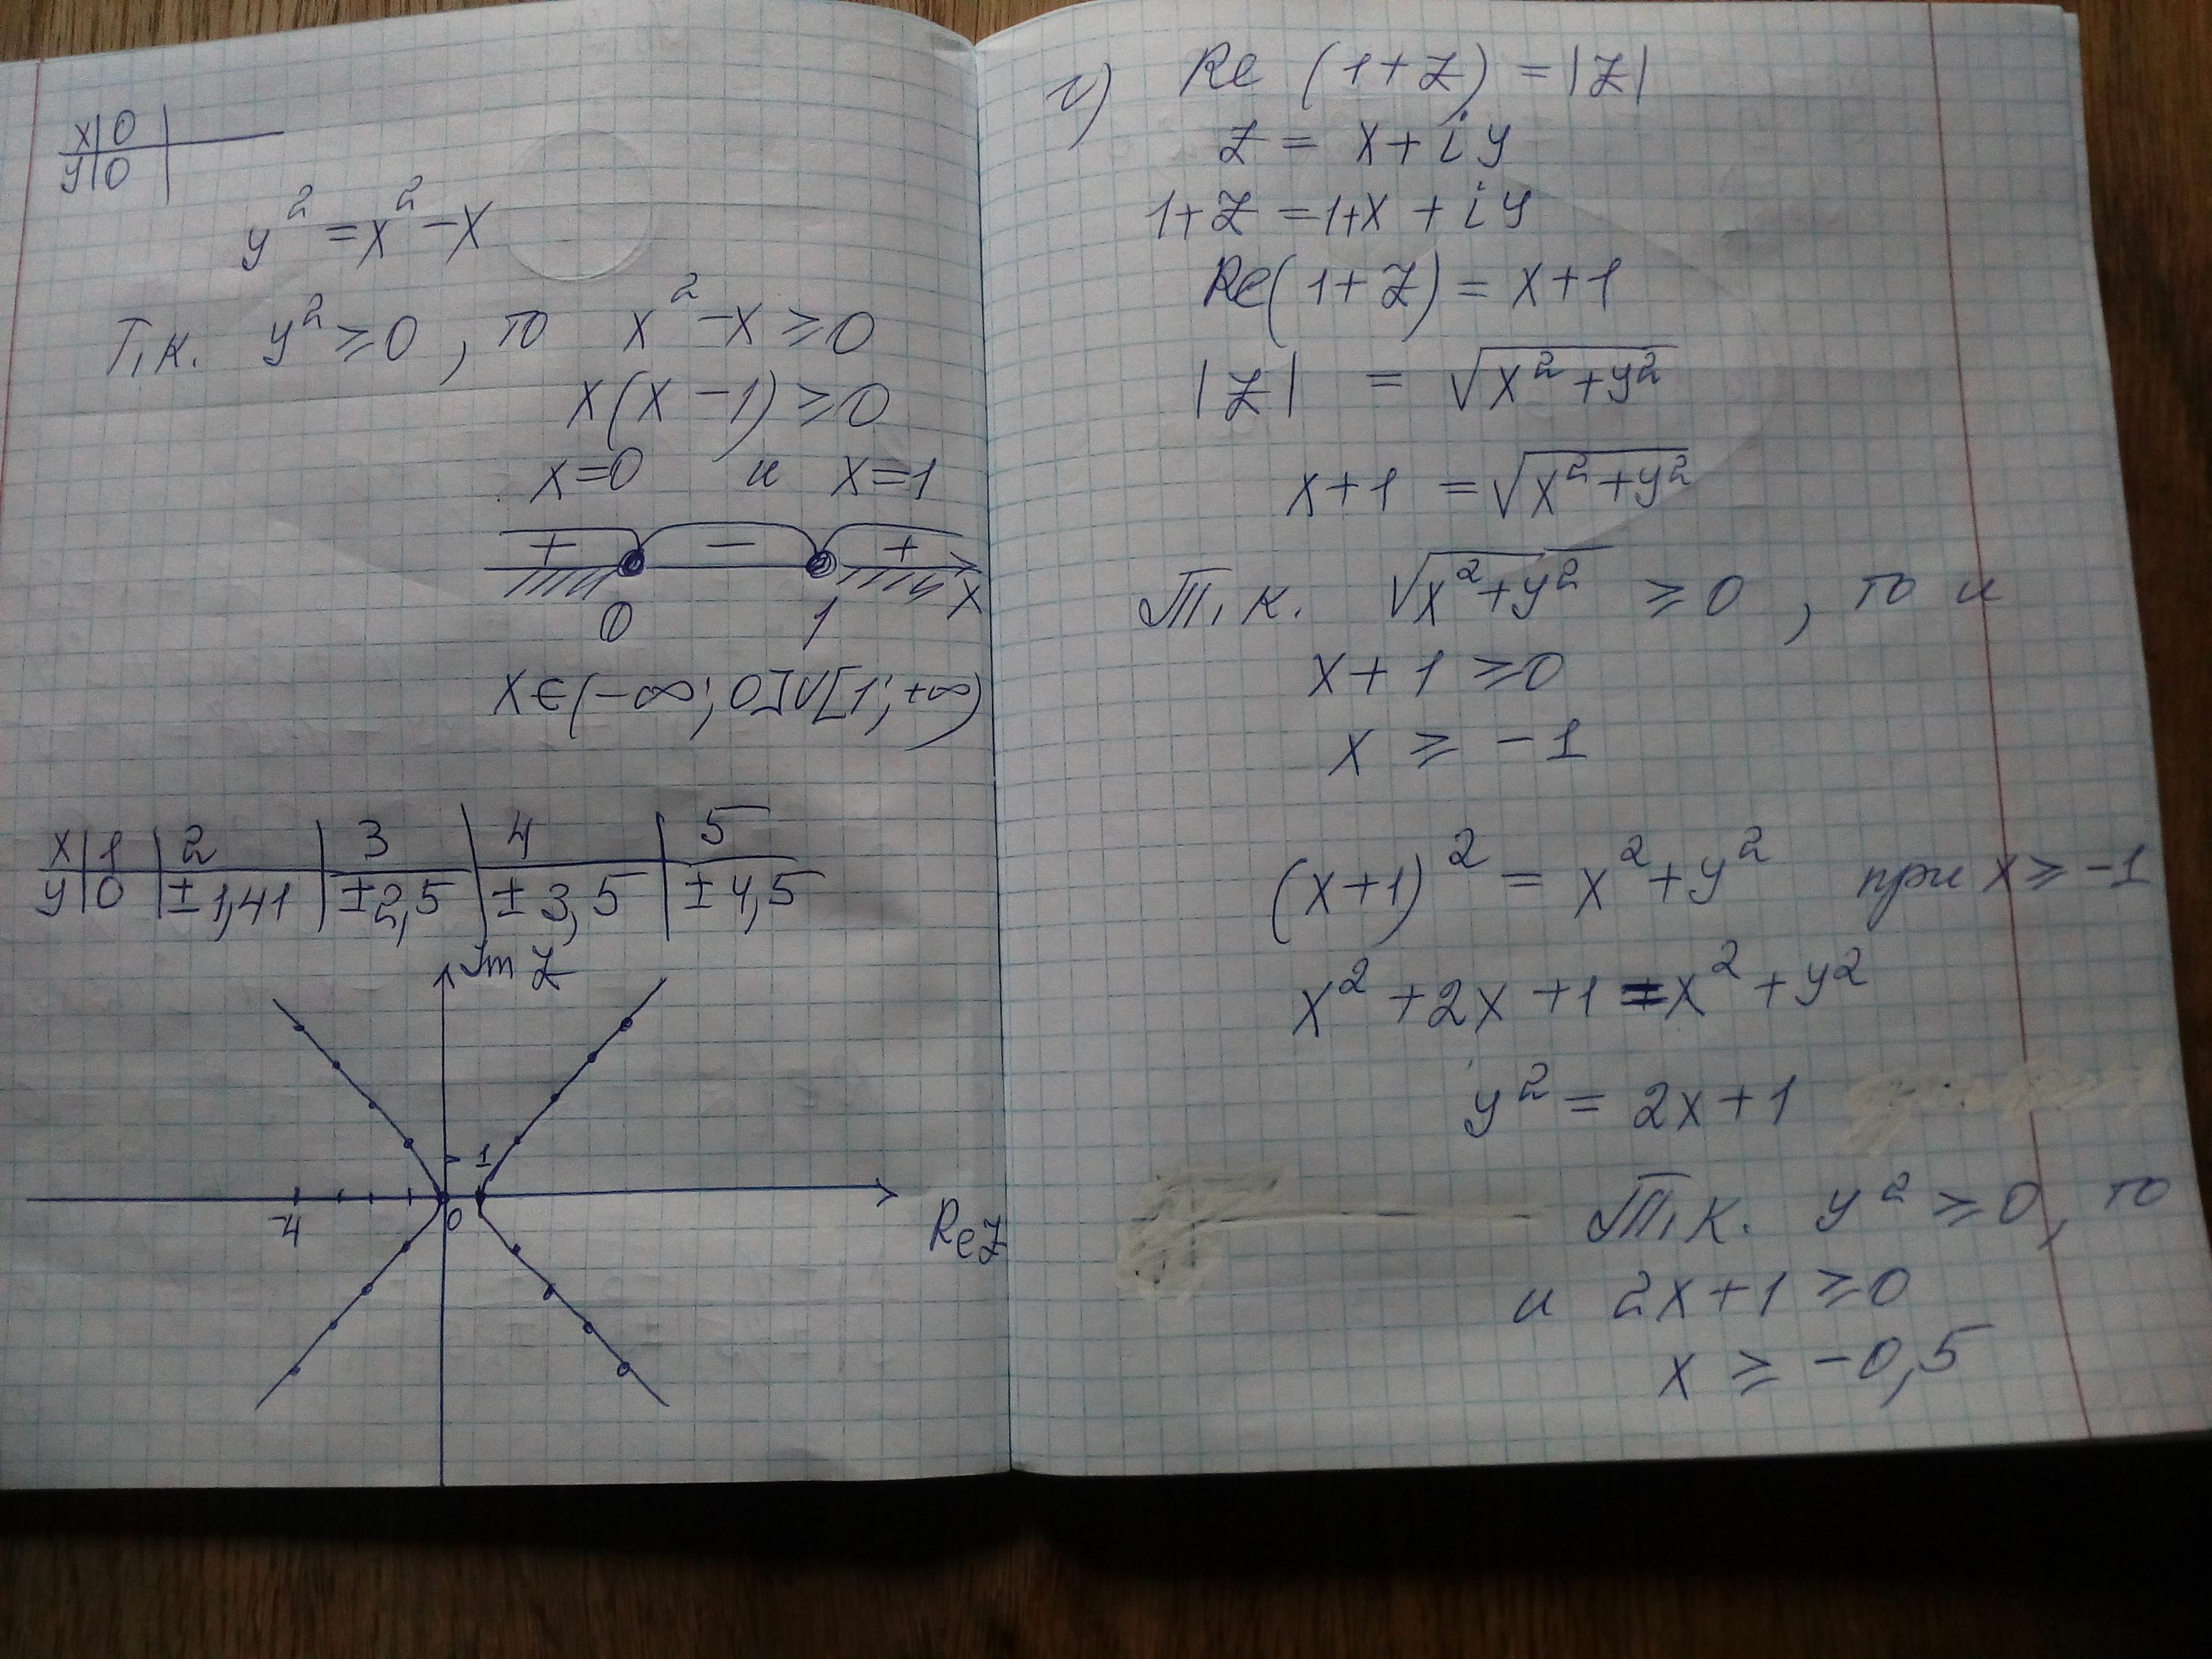 x | 0 |
y | 0 |
y² = x² - x
Т.к. y² ≥ 0, то x² - x ≥ 0
x(x - 1) ≥ 0
x=0 и x=1
+ - +
0 1 x
x ∈ (-∞; 0] ∪ [1; +∞)
x | 1 | 2 | 3 | 4 | 5
y | 0 | ±1,41 | ±2,5 | ±3,5 | ±4,5
Im Z
1
-4 0
Re Z
г) Re (1+Z) = |Z|
Z = x + iy
1+Z = 1+x + iy
Re(1+Z) = x+1
|Z| = √(x² + y²)
x+1 = √(x² + y²)
Т.к. √(x² + y²) ≥ 0, то и
x + 1 ≥ 0
x ≥ -1
(x+1)² = x² + y² при x ≥ -1
x² + 2x + 1 = x² + y²
y² = 2x + 1
Т.к. y² ≥ 0, то
и 2x + 1 ≥ 0
x ≥ -0,5